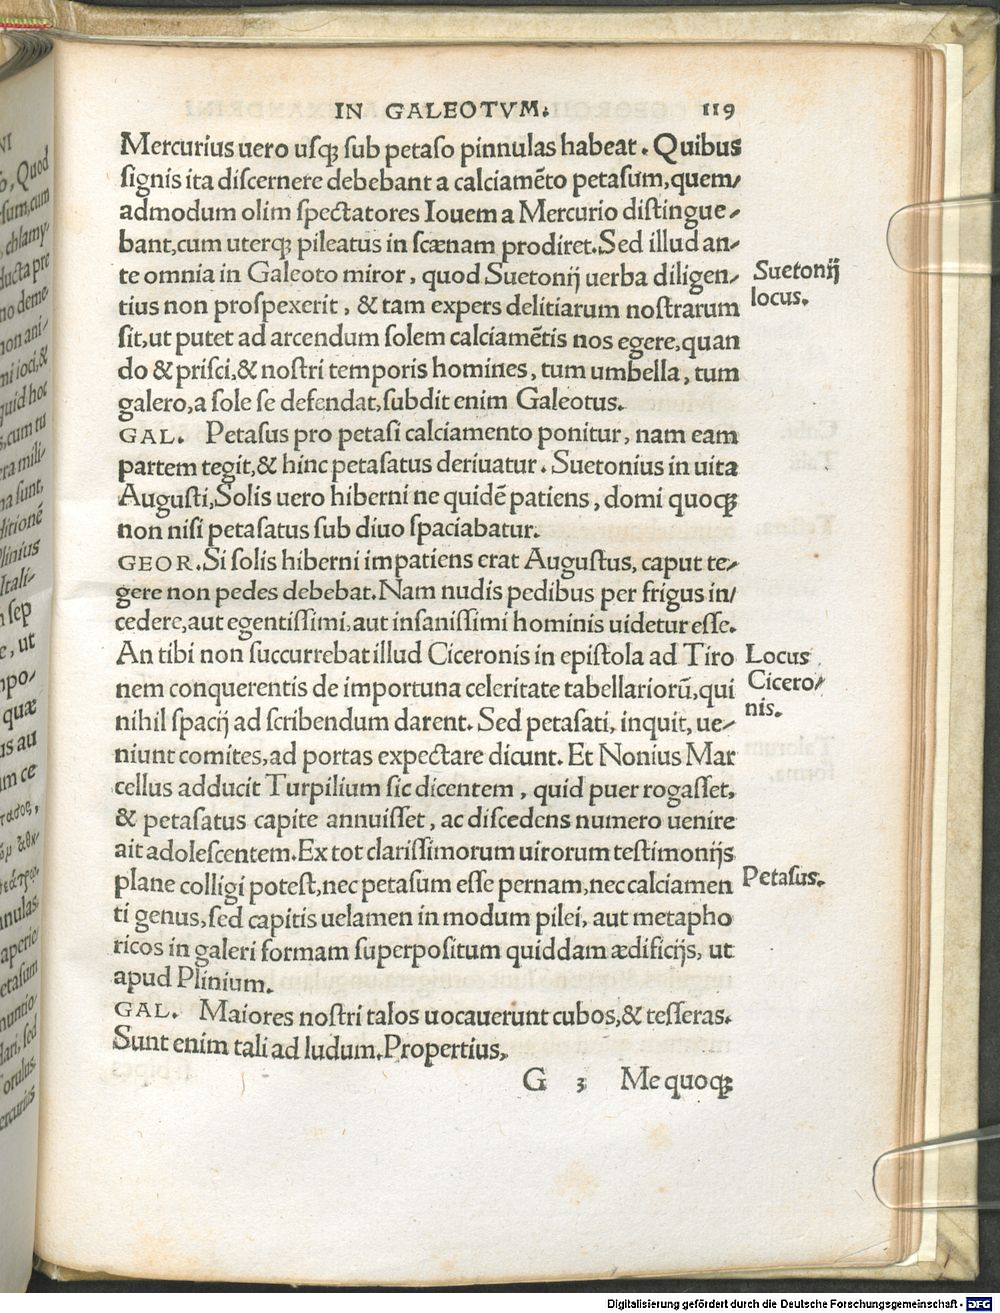 IN GALEOTVM. 119
Mercurius uero usqȝ sub petaso pinnulas habeat. Quibus
signis ita discernere debebant a calciamēto petasum, quem/
admodum olim spectatores Iouem a Mercurio distingue/
bant, cum uterqȝ pileatus in scænam prodiret. Sed illud an/
te omnia in Galeoto miror, quod Suetonij uerba diligen/
Suetonij
locus.
tius non prospexerit, & tam expers delitiarum nostrarum
sit, ut putet ad arcendum solem calciamētis nos egere, quan
do & prisci, & nostri temporis homines, tum umbella, tum
galero, a sole se defendat, subdit enim Galeotus.
GAL. Petasus pro petasi calciamento ponitur, nam eam
partem tegit, & hinc petasatus deriuatur. Suetonius in uita
Augusti, Solis uero hiberni ne quidē patiens, domi quoqȝ
non nisi petasatus sub diuo spaciabatur.
GEOR. Si solis hiberni impatiens erat Augustus, caput te/
gere non pedes debebat. Nam nudis pedibus per frigus in/
cedere, aut egentissimi, aut insanissimi hominis uidetur esse.
An tibi non succurrebat illud Ciceronis in epistola ad Tiro
Locus
Cicero/
nis.
nem conquerentis de importuna celeritate tabellariorū, qui
nihil spacij ad scribendum darent. Sed petasati, inquit, ue/
niunt comites, ad portas expectare dicunt. Et Nonius Mar
cellus adducit Turpilium sic dicentem, quid puer rogasset,
& petasatus capite annuisset, ac discedens numero uenire
ait adolescentem. Ex tot clarissimorum uirorum testimonijs
plane colligi potest, nec petasum esse pernam, nec calciamen
Petasus.
ti genus, sed capitis uelamen in modum pilei, aut metapho
ricos in galeri formam superpositum quiddam ædificijs, ut
apud Plinium.
GAL. Maiores nostri talos uocauerunt cubos, & tesseras.
Sunt enim tali ad ludum. Propertius.
G 3 Me quoqȝ
Digitalisierung gefördert durch die Deutsche Forschungsgemeinschaft - DFG